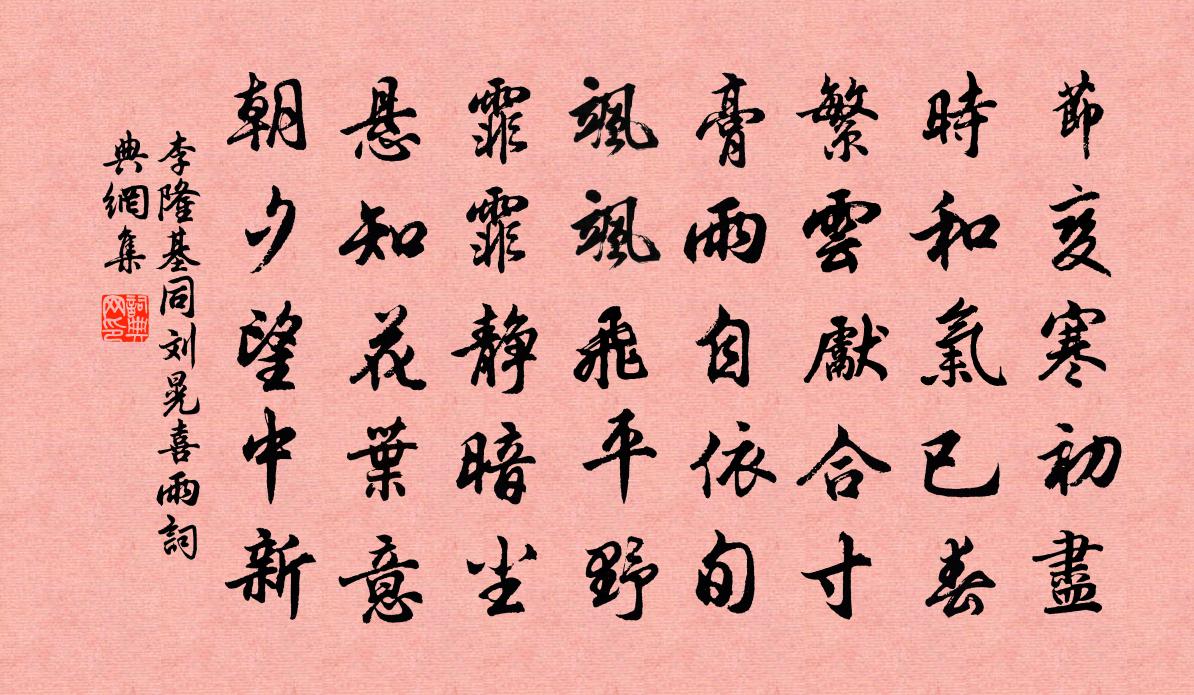 節變寒初盡
時和氣已春
繁雲獻合寸
膏雨自依旬
颯颯飛平野
霏霏靜暗塵
悬知花葉意
朝夕望中新
李隆基同刘晃喜雨詞
典網集
詞典
网印